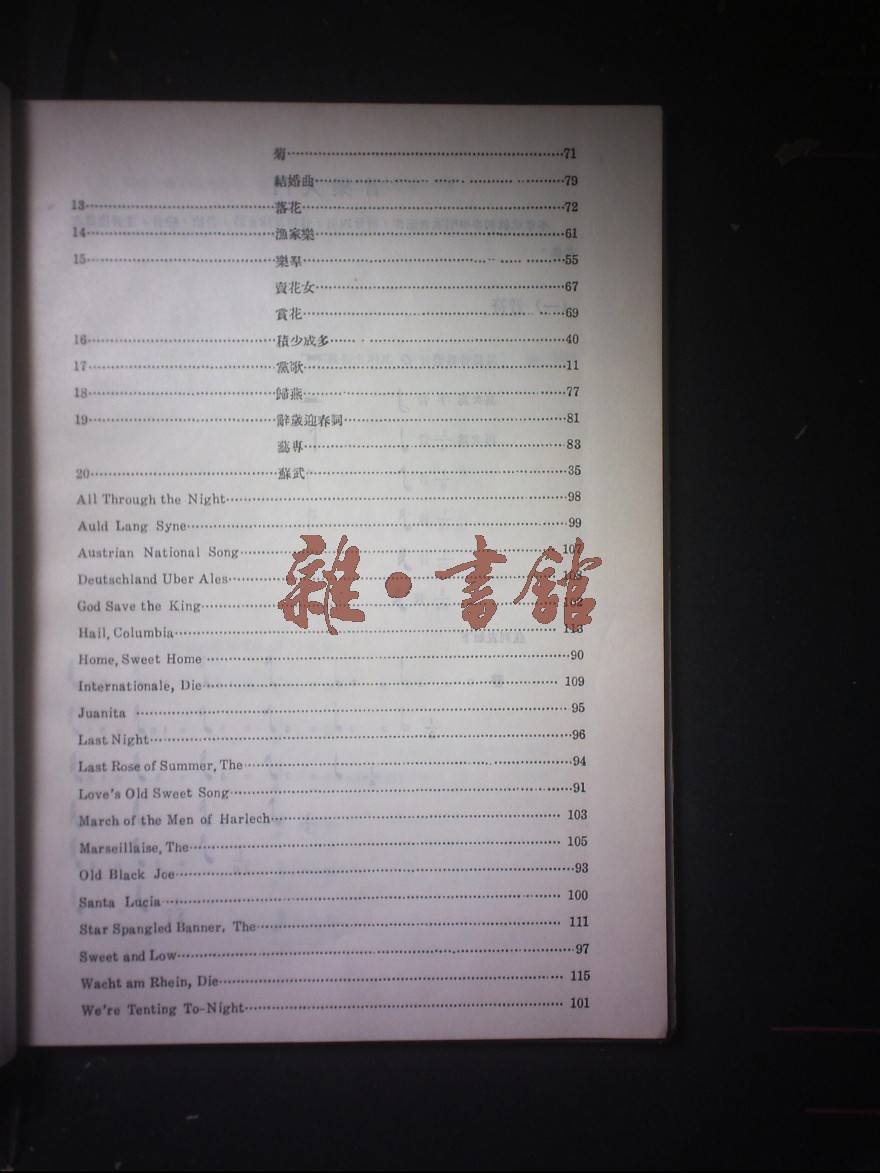 菊……71
結婚曲……79
13……落花……72
14……漁家樂……61
15……樂羣……55
賣花女……67
賞花……69
16……積少成多……40
17……黨歌……11
18……歸燕……77
19……辭歲迎春詞……81
藝專……83
20……蘇武……35
All Through the Night……98
Auld Lang Syne……99
Austrian National Song……107
Deutschland Uber Ales……
God Save the King……102
Hail, Columbia……113
Home, Sweet Home……90
Internationale, Die……109
Juanita……95
Last Night……96
Last Rose of Summer, The……94
Love's Old Sweet Song……91
March of the Men of Harlech……103
Marseillaise, The……105
Old Black Joe……93
Santa Lucia……100
Star Spangled Banner, The……111
Sweet and Low……97
Wacht am Rhein, Die……115
We're Tenting To-Night……101
雜·書館